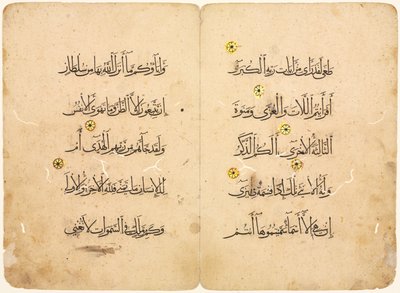 طغى لقد رأى من آيات ربه الكبرى
أفرأيتم اللات والعزى ومنوة
الثالثة الأخرى ألكم الذكر
وله الأنثى تلك إذا قسمة ضيزى
إن هي إلا أسماء سميتموها أنتم
وآباؤكم ما أنزل الله بها من سلطان
إن يتبعون إلا الظن وما تهوى الأنفس
ولقد جاءهم من ربهم الهدى أم
للإنسان ما تمنى فلله الآخرة والأولى
وكم من ملك في السموات لا تغني